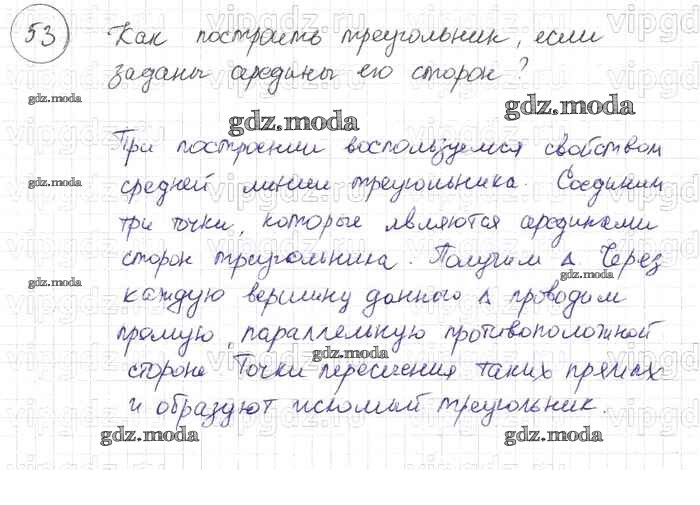 53 Как построить треугольник, если
заданы средины его сторон?
При построении воспользуемся свойством
средней линии треугольника. Соединим
три точки, которые являются срединами
сторон треугольника. Получим Δ. Через
каждую вершину данного Δ проводим
прямую, параллельную противоположной
стороне. Точки пересечения таких прямых
и образуют искомый треугольник.
gdz.moda
gdz.moda
gdz.moda
gdz.moda
gdz.moda
gdz.moda
gdz.moda
gdz.moda
gdz.moda
gdz.moda